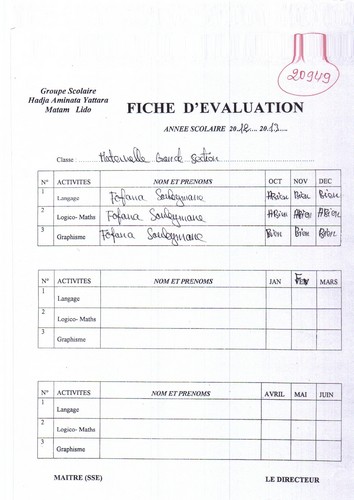 20949
Groupe Scolaire
Hadja Aminata Yattara
Matam Lido
FICHE D'EVALUATION
ANNEE SCOLAIRE 20.12.... 20.13....
Classe : Maternelle Grande Section
N° ACTIVITES NOM ET PRENOMS OCT NOV DEC
1 Langage Fofana Souleymane ABien Bien Bien
2 Logico- Maths Fofana Souleymane ABien ABien ABien
3 Graphisme Fofana Souleymane Bien Bien Bien
N° ACTIVITES NOM ET PRENOMS JAN MARS
1 Langage
2 Logico- Maths
3 Graphisme
N° ACTIVITES NOM ET PRENOMS AVRIL MAI JUIN
1 Langage
2 Logico- Maths
3 Graphisme
MAITRE (SSE) LE DIRECTEUR